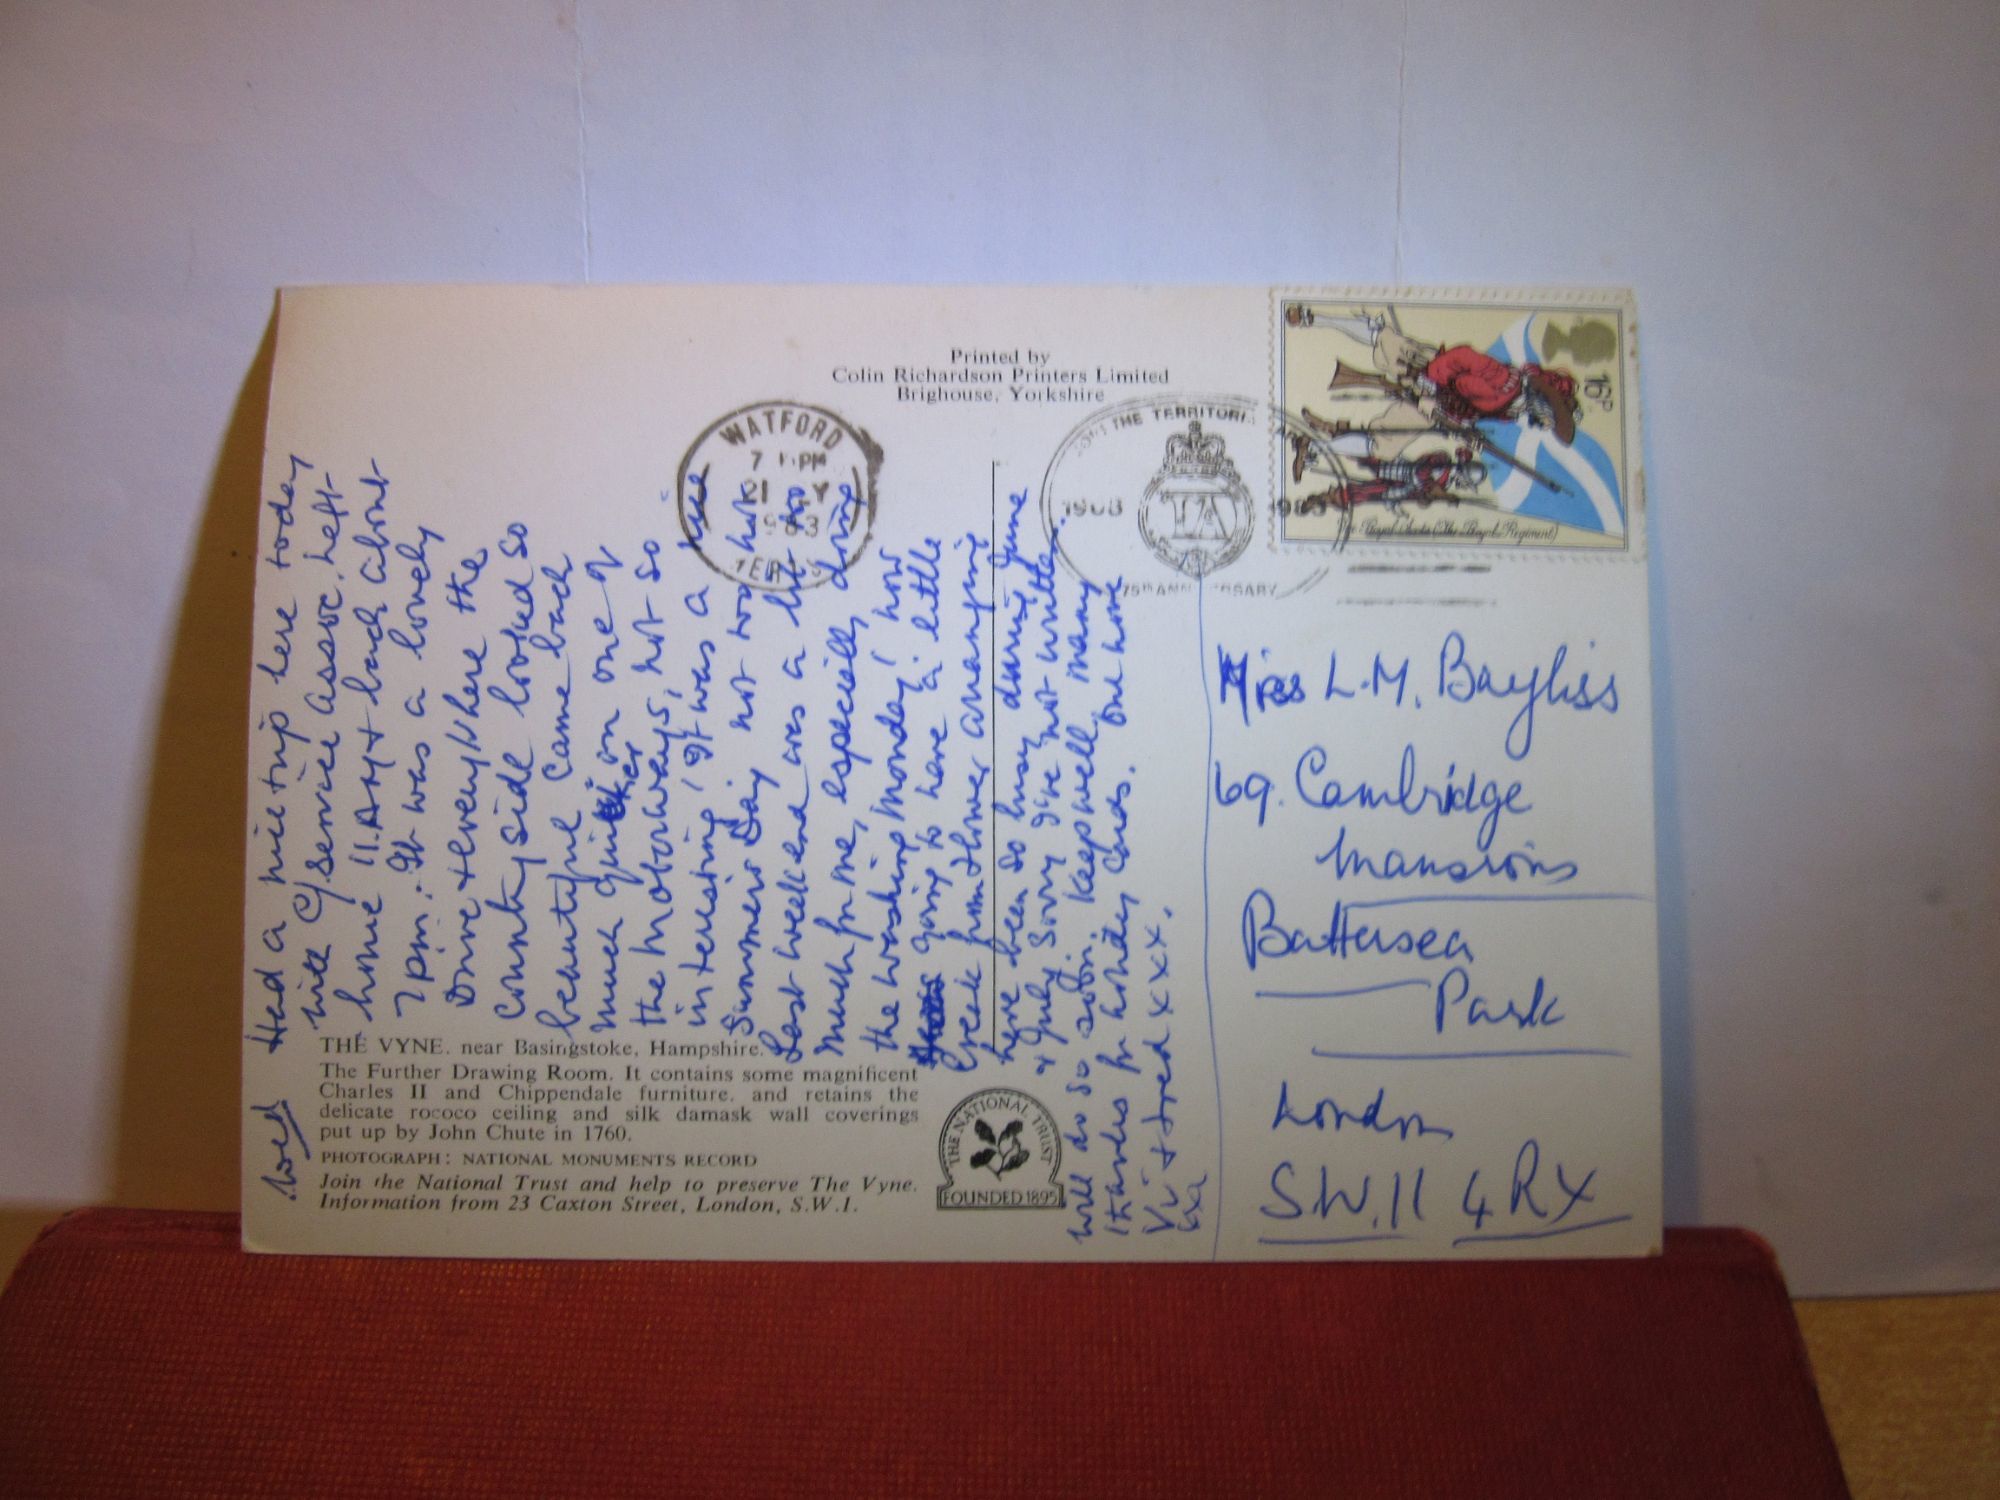 Printed by
Colin Richardson Printers Limited
Brighouse, Yorkshire
WATFORD
7 PM
21 Y
1983
THE TERRITORI
TA
1983
75TH ANN RSARY
16P
The Royal Scots (The Royal Regiment)
Wed Had a nice trip here today
with C/Service Assoc. Left
home 11.AM + back about
7pm. It was a lovely
Drive + everywhere the
Country side looked so
beautiful Came back
much quicker on one of
the Motorways, not so
interesting! It was a nice
Summers Day not too hot
Last week end was a bit too
much for me, especially doing
the washing Monday! now
going to have a little
break from Flower arranging
have been so busy during June
+ July Sorry I've not written
will do so soon. Keep well, many
thanks for holiday Cards. Our love
Vi + Fred x x x x.
THE VYNE. near Basingstoke, Hampshire.
The Further Drawing Room. It contains some magnificent
Charles II and Chippendale furniture, and retains the
delicate rococo ceiling and silk damask wall coverings
put up by John Chute in 1760.
PHOTOGRAPH: NATIONAL MONUMENTS RECORD
Join the National Trust and help to preserve The Vyne.
Information from 23 Caxton Street, London, S.W.1.
THE NATIONAL TRUST
FOUNDED 1895
L.M. Bayliss
69. Cambridge
Mansions
Battersea
Park
London
S.W.11 4RX